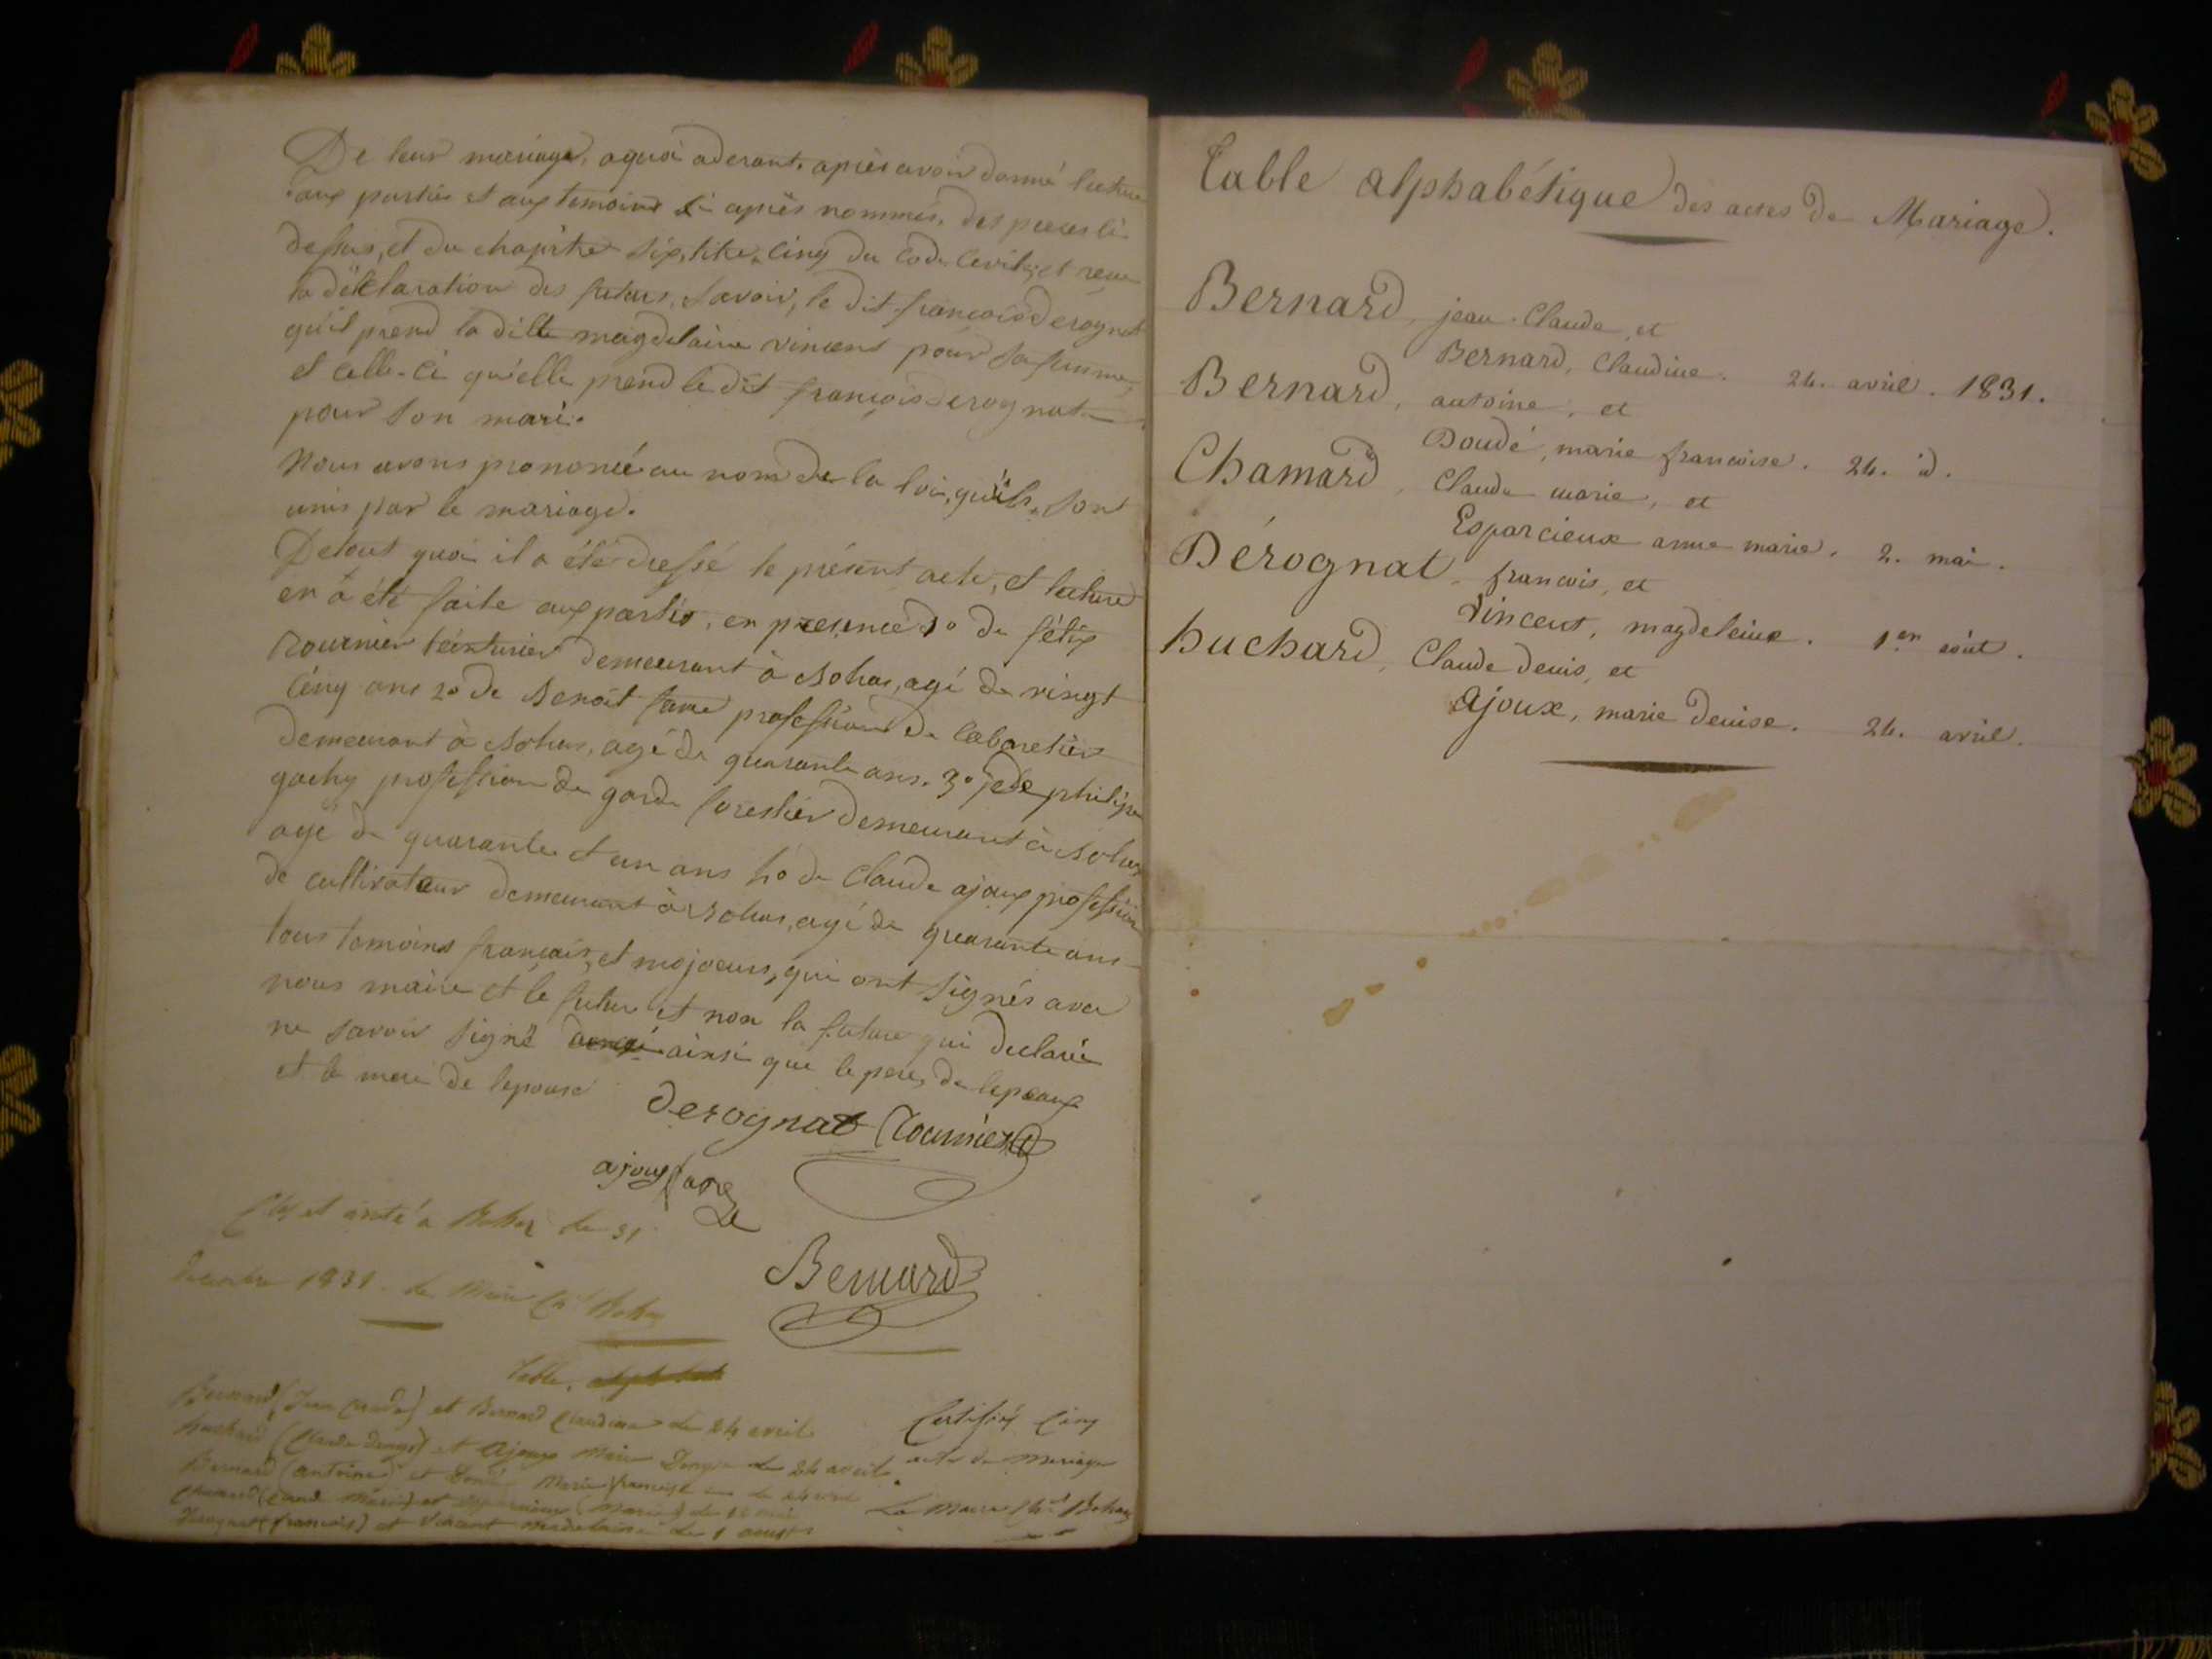 De leur mariage, aquoi aderant, après avoir donné lecture
aux parties et aux temoins ci après nommés, des pieces ci-
dessus, et du chapitre six, titre, cinq du Code Civile, et reçu
la déclaration des futurs, savoir, le dit françois derognat
qu'il prend la dille magdelaine vincent pour sa femme,
et celle-ci qu'elle prend le dit françois derognat
pour son mari.
Nous avons prononcé au nom de la loi, qu'ils sont
unis par le mariage.
De tout quoi il a été dressé le présent acte, et lecture
en a été faite aux parties, en presence 1º de félix
tournier teinturier demeurant à Bohas, agé de vingt
cinq ans 2º de Benoit favre profession de cabaretier
demeurant à Bohas, agé de quarante ans. 3º de philipe
gachy profession de garde forestier demeurant à Bohas
agé de quarante et un ans 4º de Claude ajoux profession
de cultivateur demeurant à Bohas, agé de quarante ans
tous temoins français, et majeurs, qui ont signés avec
nous maire et le futur et non la future qui declaré
ne savoir signé ainsi que le pere de lepoux
et la mere de lepouse
derognat tournier
ajoux favre
Bernard
Clos et arrêté a Bohas le 31
decembre 1831. le Maire
Table.
Bernard (Jean Claude) et Bernard Claudine du 24 avril
huchard (Claude Denys) et Ajoux Marie Denyse du 24 avril
Bernard (antoine) et Doudé Marie françoise du 24 avril
Chamard (Claude Marie) et Esparcieux (Marie) du
Derognat (françois) et Vincent Madelaine du 1 aoust
Certifiés Cinq
actes de mariage
Le Maire
Table alphabétique des actes de Mariage.
Bernard, jean-Claude, et
Bernard, Claudine. 24. avril. 1831.
Bernard, antoine, et
Doudé, marie françoise. 24. id.
Chamard, Claude marie, et
Esparcieux anne marie. 2. mai.
Dérognat, francois, et
Vincent, magdeleine. 1er août.
huchard, Claude denis, et
Ajoux, marie denise. 24. avril.